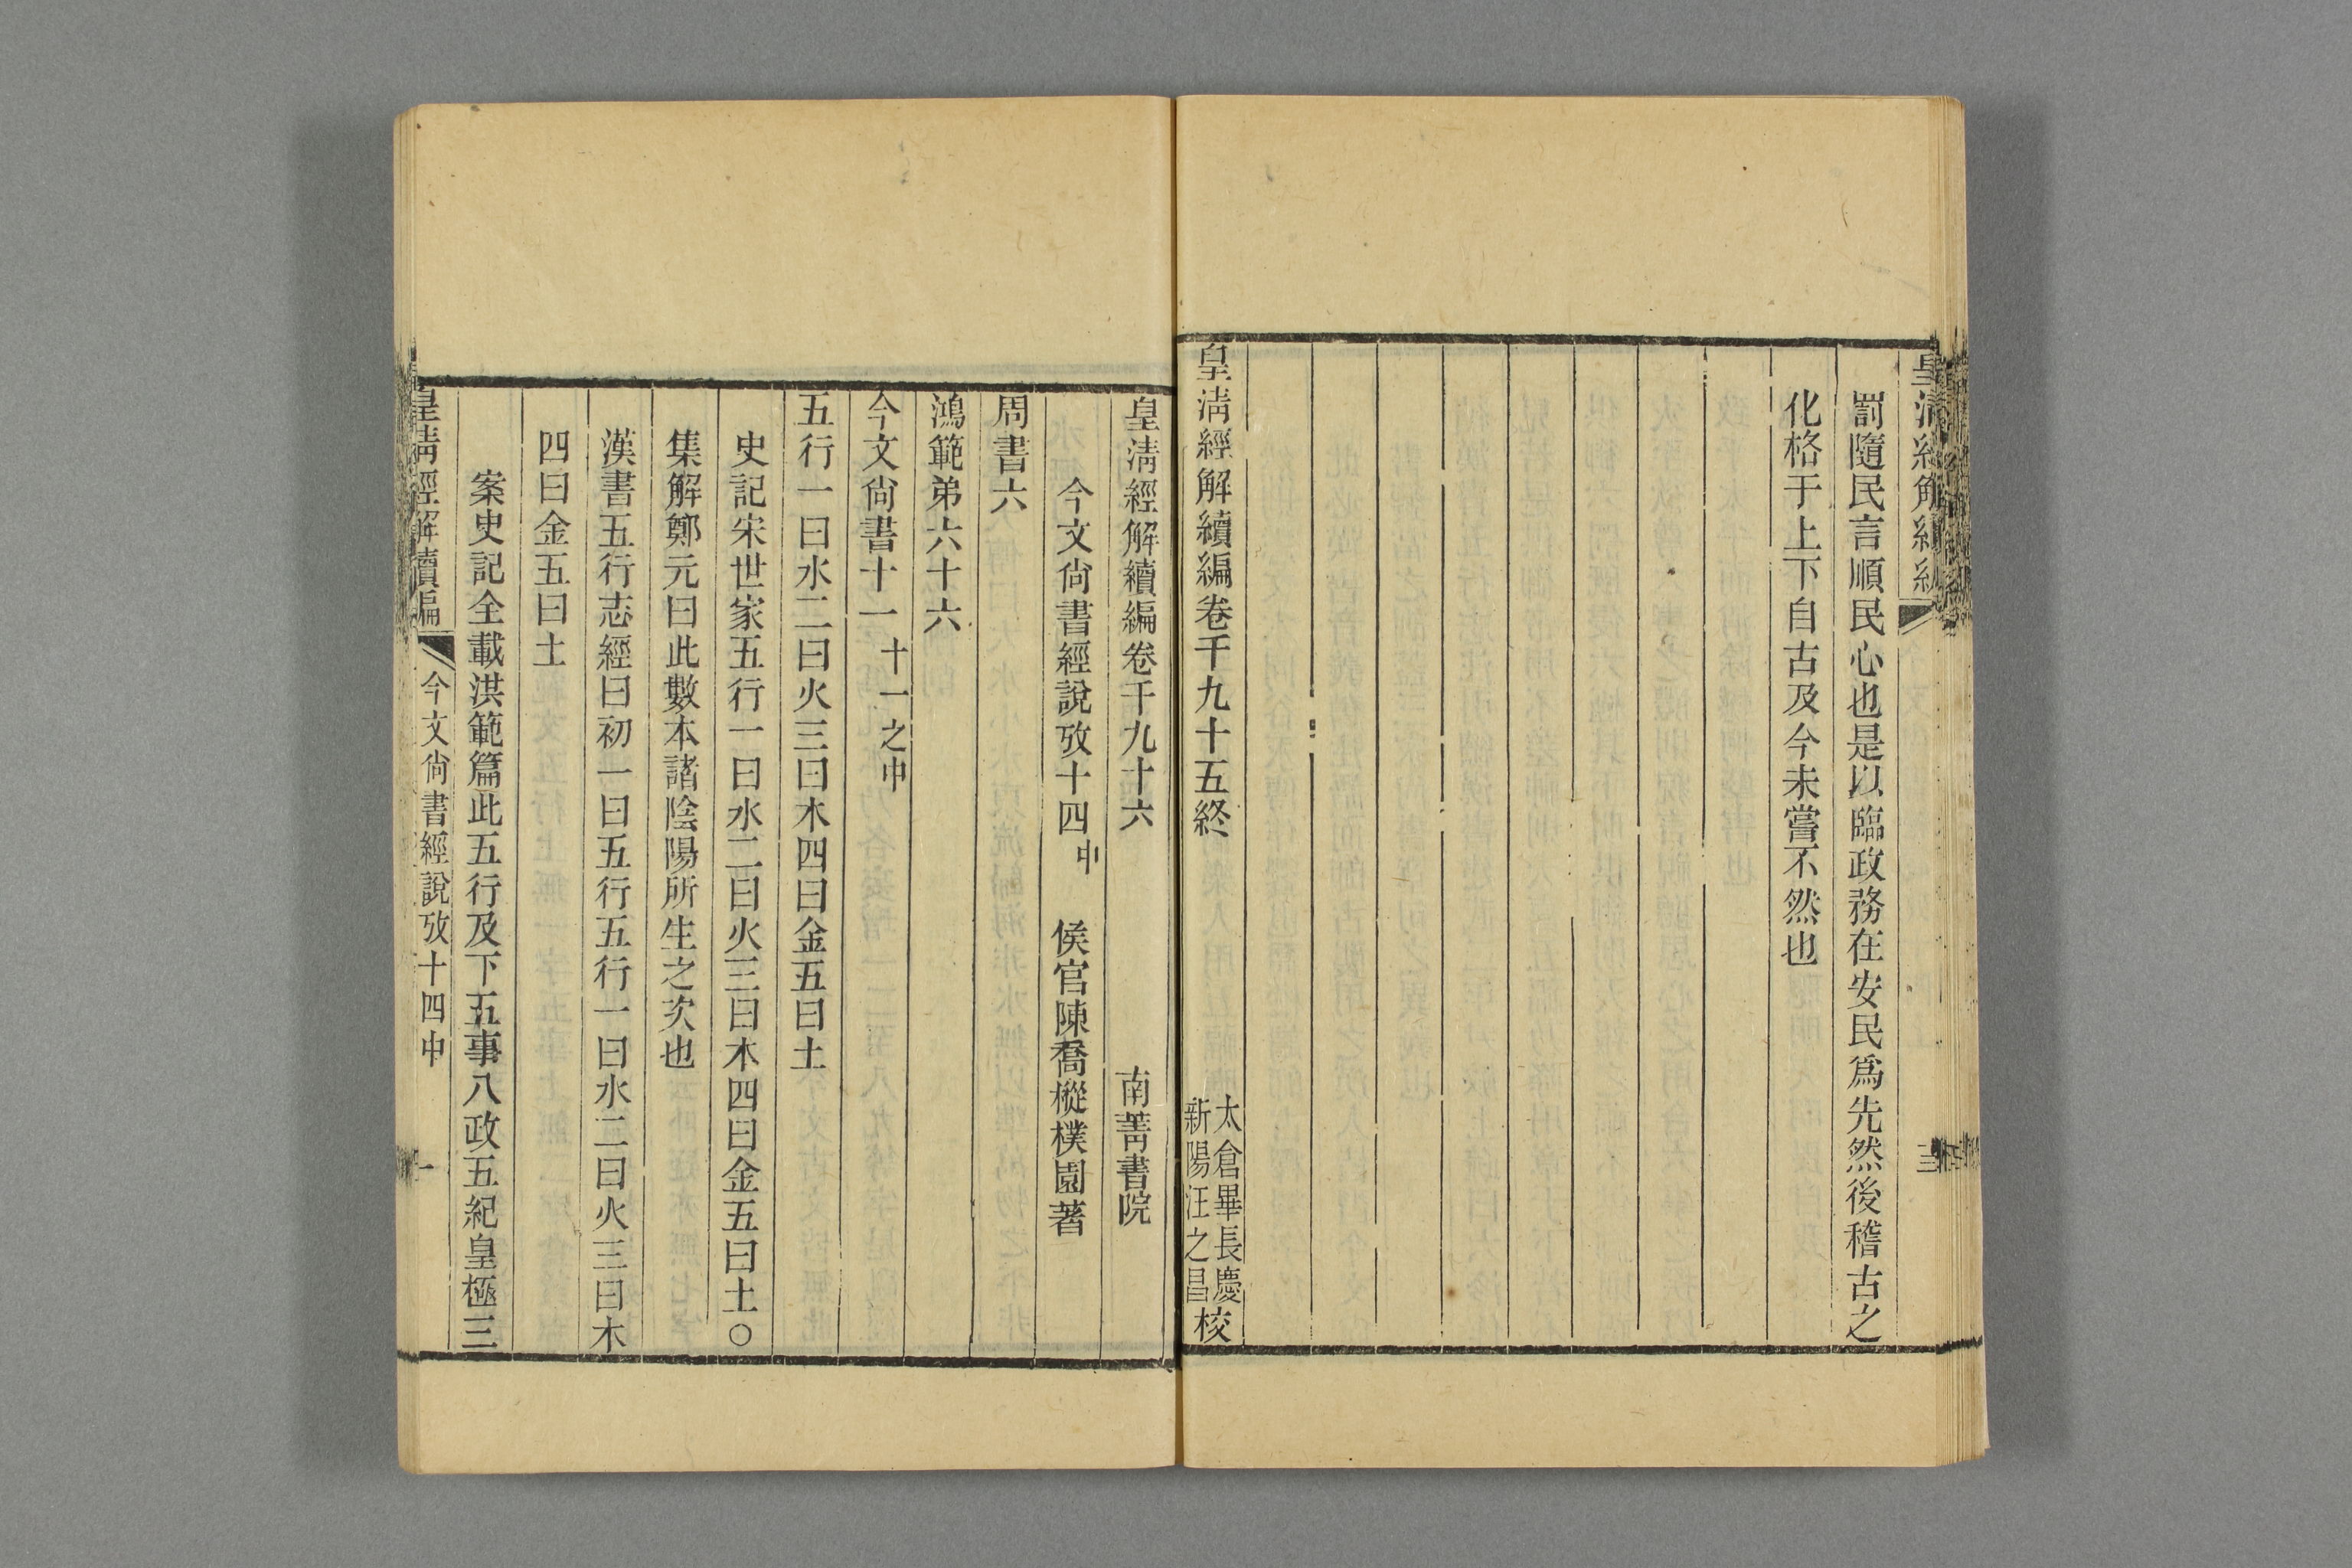 罰隨民言順民心也是以臨政務在安民爲先然後稽古之
化格于上下自古及今未嘗不然也
皇淸經解續編卷千九十五終
太倉畢長慶
新陽汪之昌
校
皇淸經解續編卷千九十六
南菁書院
今文尙書經說攷十四中
侯官陳喬樅樸園著
周書六
鴻範弟六十六
今文尙書十一
十一之中
五行一曰水二曰火三曰木四曰金五曰土
史記宋世家五行一曰水二曰火三曰木四曰金五曰土○
集解鄭元曰此數本諸陰陽所生之次也
漢書五行志經曰初一曰五行五行一曰水二曰火三曰木
四曰金五曰土
案史記全載洪範篇此五行及下五事八政五紀皇極三
皇淸經解續編
今文尙書經說攷十四中
一